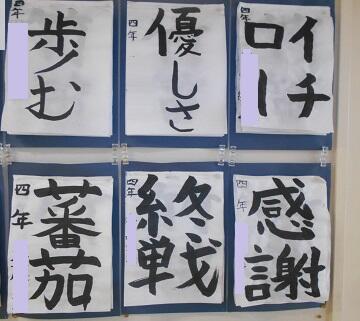 四年
歩む
四年
優しさ
四年
イチ
ロー
四年
蕃茄
四年
終戦
四年
感謝